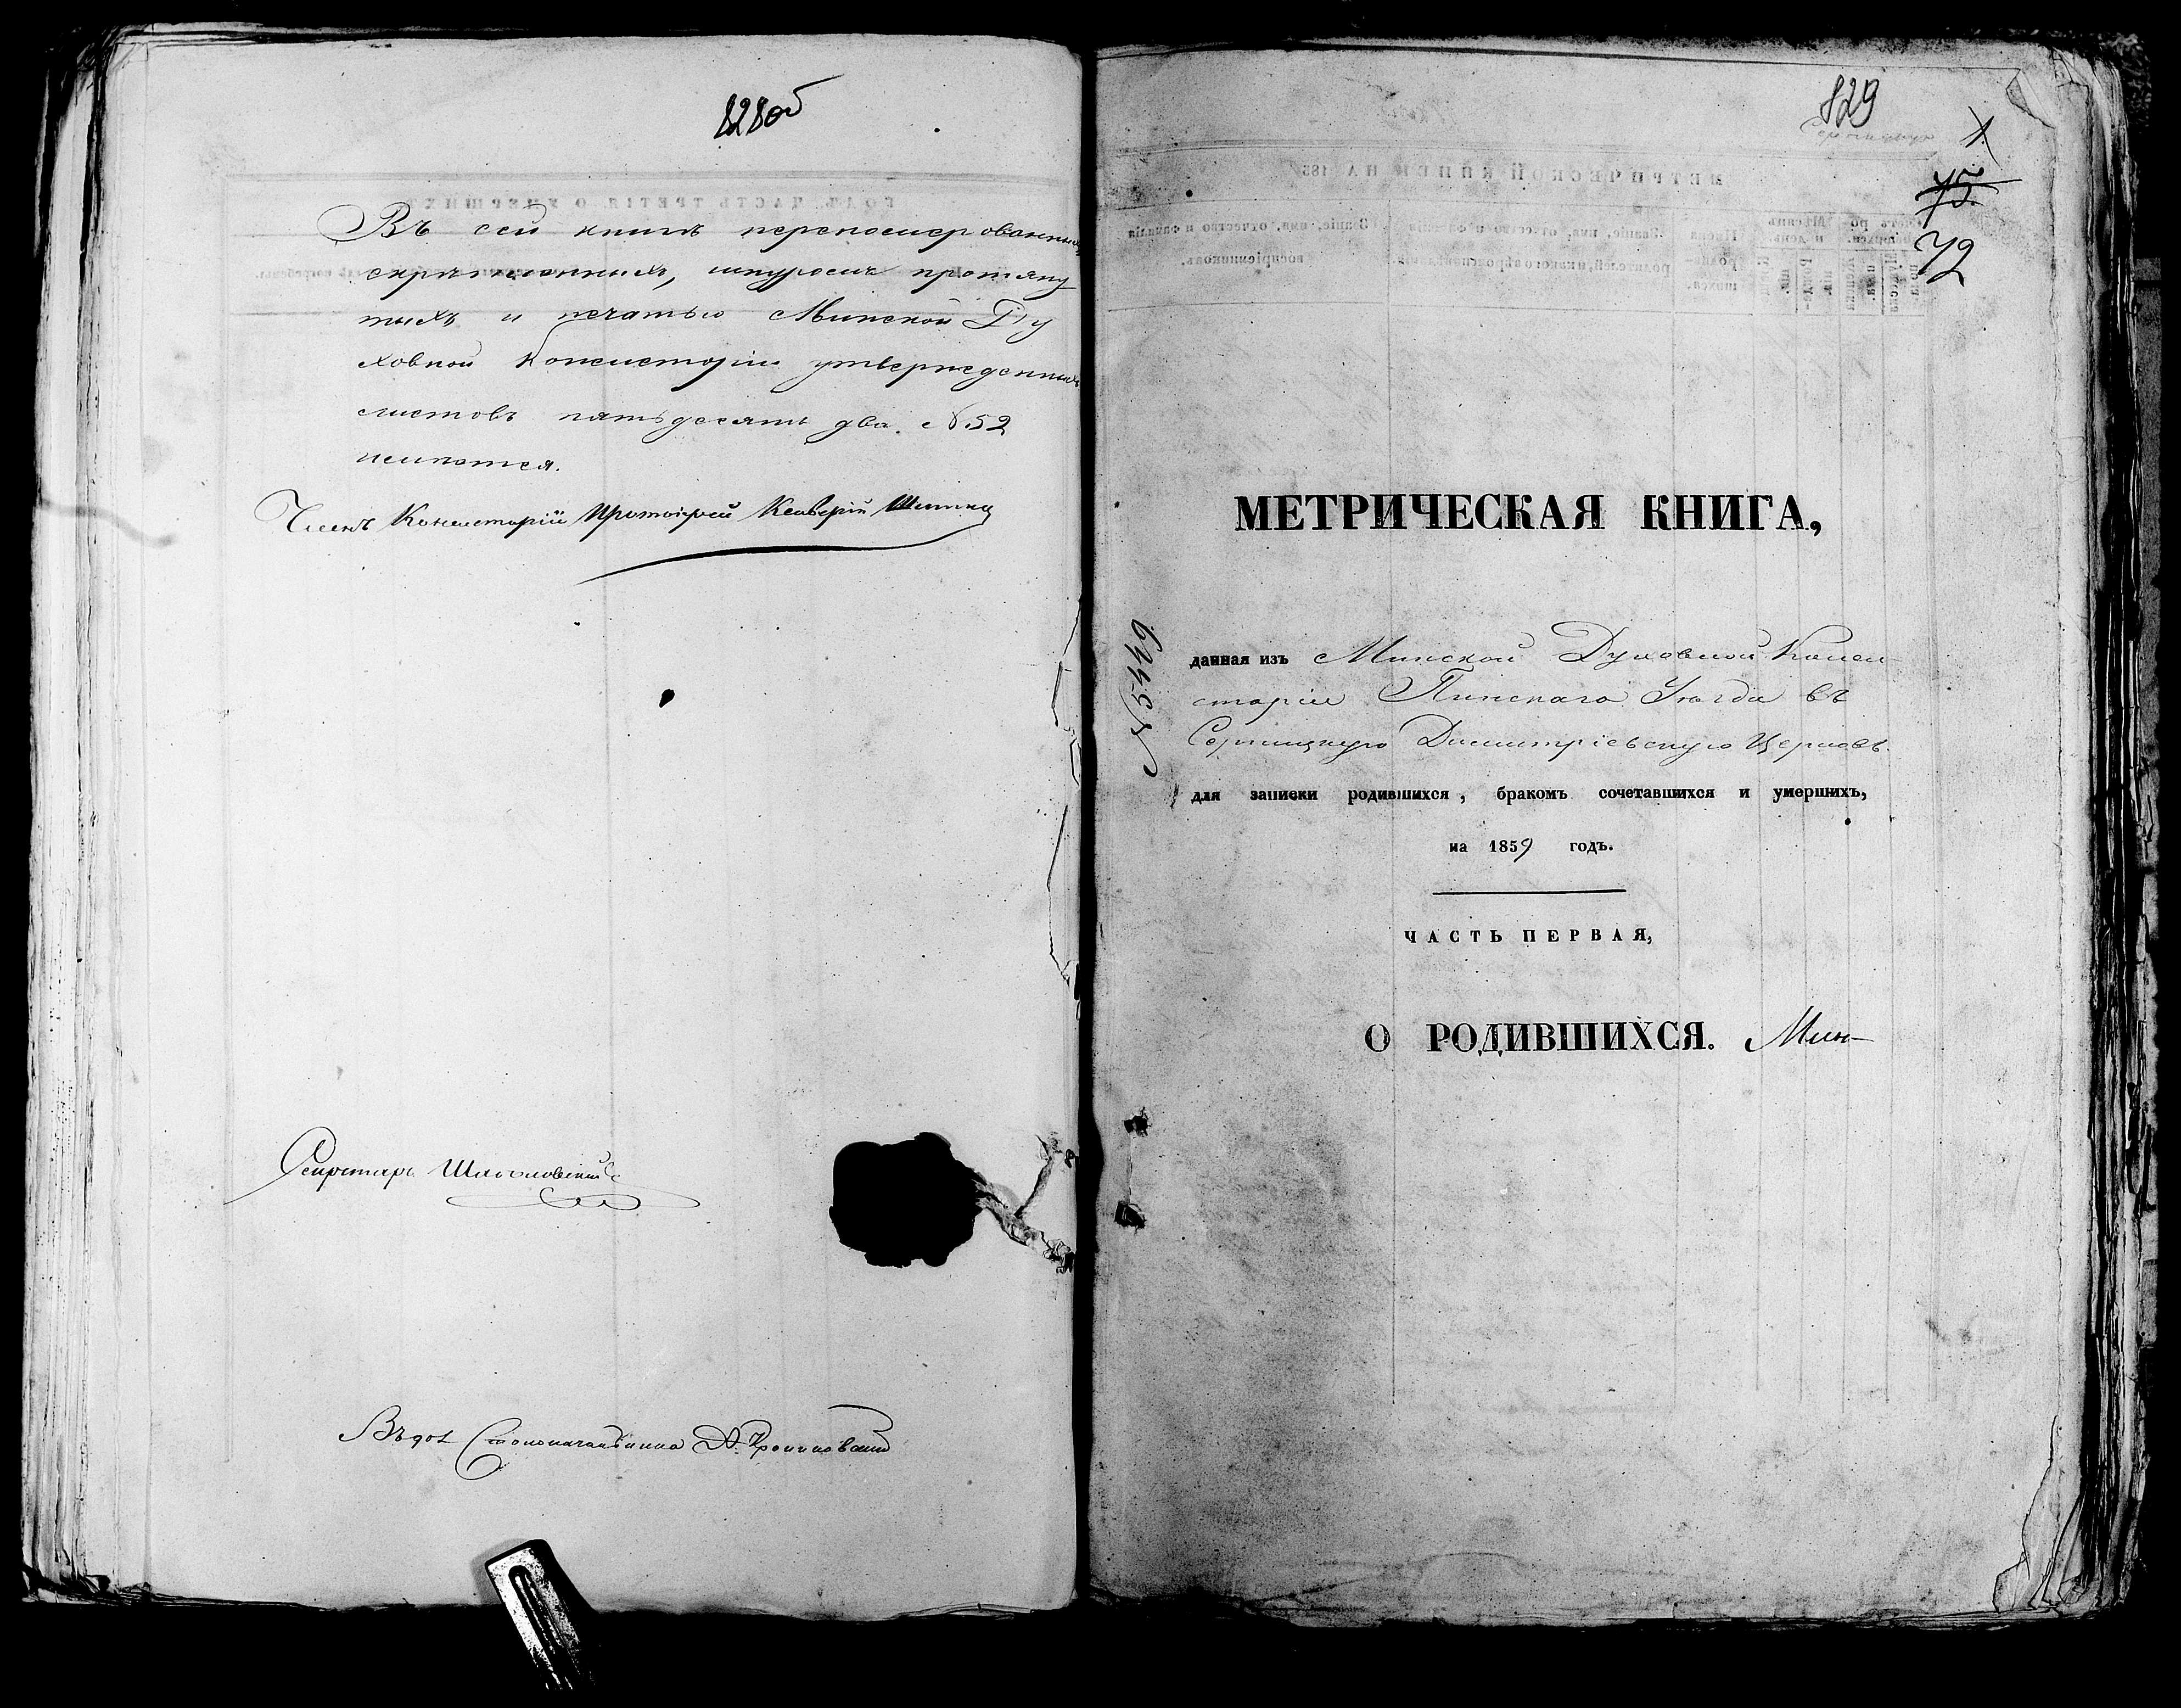 828об
Въ сей книгѣ переномерованныхъ
скрѣпленныхъ, шнуромъ протяну
тыхъ и печатью Минской Ду
ховной Консисторіи утвержденныхъ
листовъ пятьдесятъ два. №52
имѣется.
Членъ Консисторіи Протоіерей
Секретарь
Столоначальника
829
1
75
72
МЕТРИЧЕСКАЯ КНИГА,
№5449
данная изъ Минской Духовной Конси
сторіи Пинскаго Уѣзда въ
Серницкую Димитріевскую Церковь
для записки родившихся, бракомъ сочетавшихся и умершихъ,
на 1859 годъ.
ЧАСТЬ ПЕРВАЯ,
О РОДИВШИХСЯ. Мин-